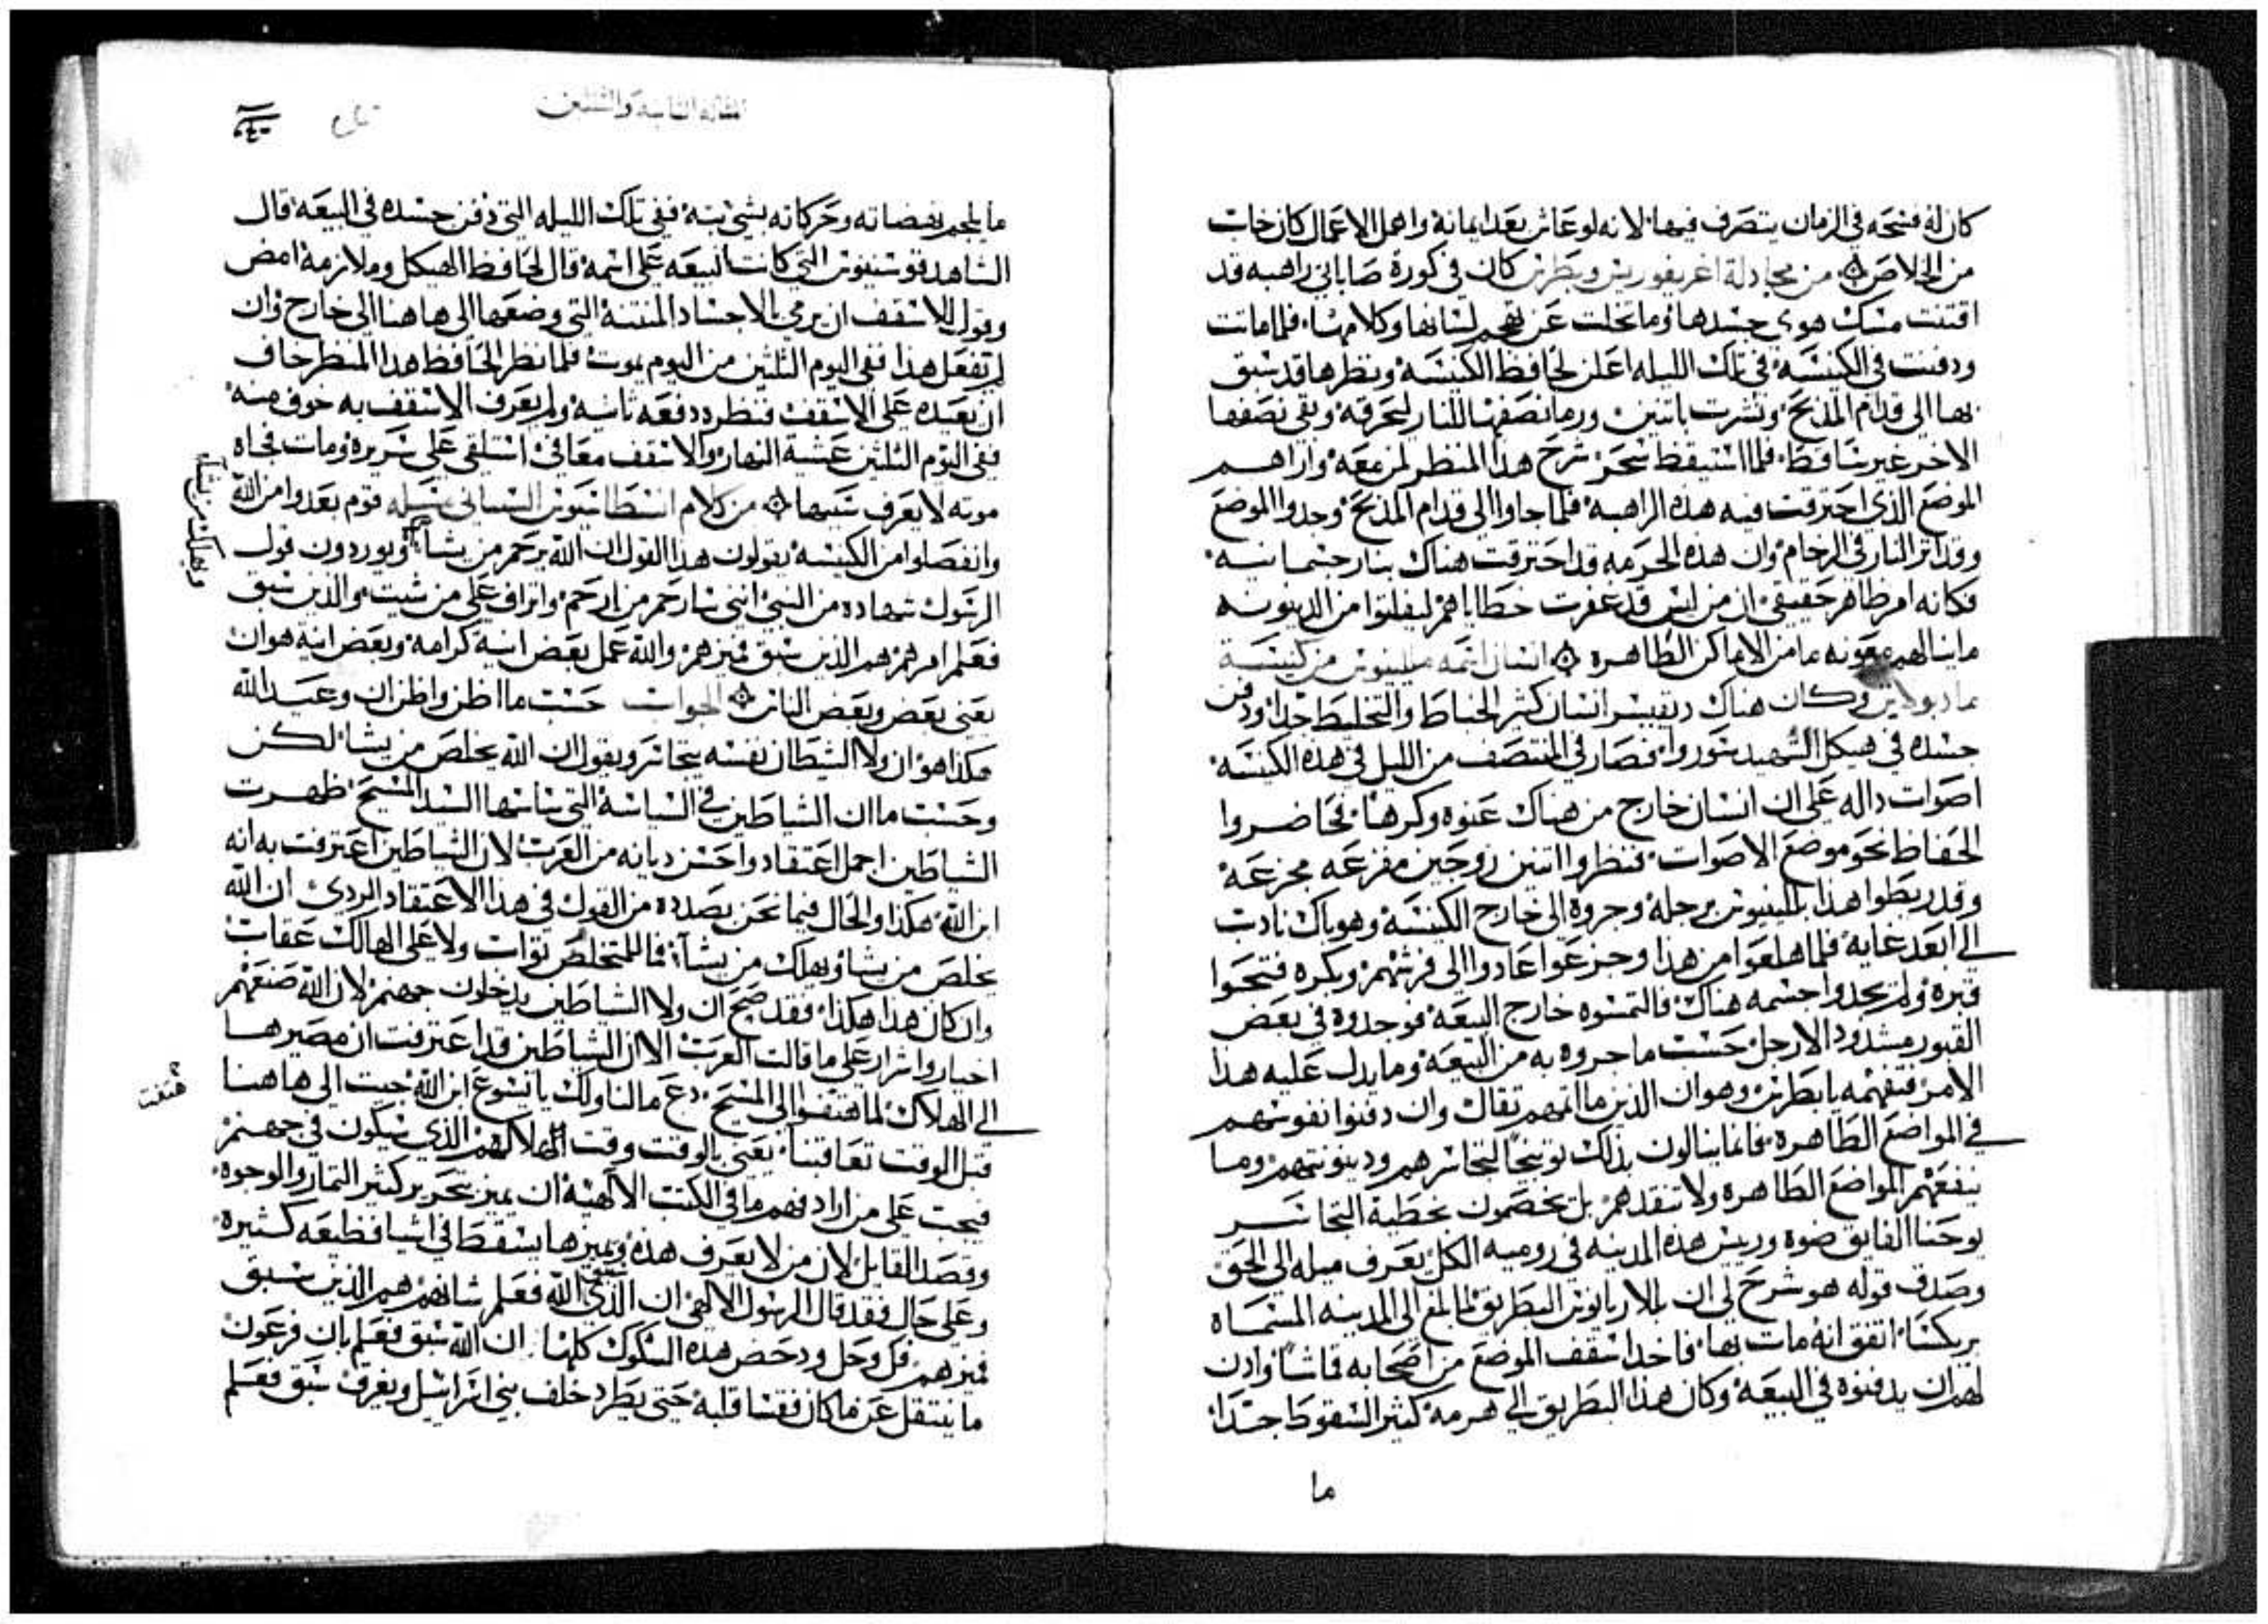 كان له فسحه في الزمان يتصرف فيها لانه لو عاش بعد ايمانه واهمل الاعمال كان خاب
من الخلاص من مجادلة اغريغوريس وبطرس كان في كورة صاباني راهبه قد
اقتنت مسك هوى جسدها وما تخلت عن تهجم لسانها وكلامها فلما ماتت
ودفنت في الكنيسه في تلك الليله اعلن لحافظ الكنيسه ونظرها قد سبق
بها الى قدام المذبح ونشرت باتنين ورما نصفها للنار لتحرقه وبقى نصفها
الاخر غير ساقط فلما استيقظ سحر شرح هذا المنظر لمن معه واراهم
الموضع الذي احترقت فيه هذه الراهبه فلما جاوا الى قدام المذبح وجدوا الموضع
وقد اثر النار في الرخام وان هذه الحرمه قد احترقت هناك بنار جسمانيه
فكانه امر ظاهر حقيقي ان من ليس قد غفرت خطاياهم ليفلتوا من الدينونه
ما ينالهم معونه ما من الاماكن الطاهره انسان اسمه ملينوس من كنيسة
وكان هناك انسان كثير الخباط والتخليط جدا ودفن
جسده في هيكل الشهيد سوروا فصار في المنتصف من الليل في هذه الكنيسه
اصوات داله على ان انسان خارج من هناك عنوه وكرها فحاضروا
الحفاظ نحو موضع الاصوات فنظروا اتنين زوجين مفزعه مجزعه
وقد ربطوا هذا بللينوس برجله وجروه الى خارج الكنيسه وهو باك نادب
الى ابعد غايه فلما هلعوا من هذا وجزعوا عادوا الى فرشهم وبكره فتحوا
قبره ولم يجدوا جسمه هناك فالتمسوه خارج البيعه فوجدوه في بعض
القبور مشدود الارجل حسب ما جروه به من البيعه وما يدل عليه هذا
الامر فتفهمه يا بطرس وهو ان الذين ما اثمهم ثقال وان دفنوا نفوسهم
في المواضع الطاهره فانما ينالون بذلك توبيخا لتجاسرهم ودينونتهم وما
ينفعهم المواضع الطاهره ولا تنقدهم بل يخصمون بخطية التجاسر
يوحنا الفايق ضوه وريس هذه المدينه في روميه الكل يعرف ميله الى الحق
وصدق قوله هو شرح لي ان بلاريانوس البطريق لما بلغ الى المدينه المسماه
بريكسا اتفق انه مات بها فاخد اسقف الموضع من اصحابه قماشا وادن
لهم ان يدفنوه في البيعه وكان هذا البطريق الى هرمه كثير السقوط جدا
ما
المقاله الثامنه والثلثين
ما يلجم نهضاته وحركاته بشي بته ففي تلك الليله التي دفن جسده في البيعه قال
الشاهد فوستينوس التي كانت البيعه على اسمه قال لحافظ الهيكل وملازمه امض
وقول للاسقف ان يرمي بالاجساد المنتنه التي وضعها الى هاهنا الى خارج وان
لم تفعل هذا ففي اليوم الثلثين من اليوم يموت فلما نظر الحافظ هذا المنظر خاف
ان يعيده على الاسقف فنظره دفعه ثانيه ولم يعرف الاسقف به خوف منه
ففي اليوم الثلثين عشية النهار والاسقف معافى استلقى على سريره ومات فجاه
موته لا يعرف سببها من كلام انسطاسيوس السناني مسله قوم بعدوا من الله
وانفصلوا من الكنيسه يقولون هذا القول ان الله يرحم من يشا ويوردون قول
ويهلك من يشا
الرسول شهاده من النبي انني سارحم من ارحم واتراف على من شيت والذين سبق
فعلم امرهم هم الذين سبق فميزهم والله عمل بعض انيه كرامه وبعض انيه هوان
يعني بعض وبعض الناس الجواب حسب ما اظن واظن ان وعبيد الله
هكذا هو ان ولا الشيطان نفسه يتجاسر ويقول ان الله يخلص من يشا لكن
وحسب ما ان الشياطين في السياسه التي ساسها السيد المسيح ظهرت
الشياطين اجمل اعتقاد واحسن ديانه من العرب لان الشياطين اعترفت به انه
ابن الله هكذا والحال فيما نحن بصدده من القول في هذا الاعتقاد الردي ان الله
يخلص من يشا ويهلك من يشا فما للمتخلص ثواب ولا على الهالك عقاب
وان كان هذا هكذا فقد صح ان ولا الشياطين يدخلون جهنم لان الله صنعهم
اخيار واشرار على ما قالت العرب الا ان الشياطين قد اعترفت ان مصيرها
الى الهلاك لما هتفوا الى المسيح دع ما لنا ولك يا يسوع ابن الله جيت الى هاهنا
هتفت
قبل الوقت تعاقبنا يعني بالوقت وقت هلاكهم الذي سيكون في جهنم
فيجب على من اراد فهم ما في الكتب الالهيه ان يميز بتحرير كثير التمار والوجوه
وقصد القايل لان من لا يعرف هذه ويميزها يسقط في اشيا فظيعه كثيره
وعلى حال فقد قال الرسول الالهي ان الذي سبق الله فعلم شانهم هم الذين سبق
فميزهم فل وحل ودحض هذه الشكوك كلها ان الله سبق فعلم بان فرعون
ما ينتقل عن ما كان فقسا قلبه حتى يطرد خلف بني اسرائيل ويغرق سبق فعلم